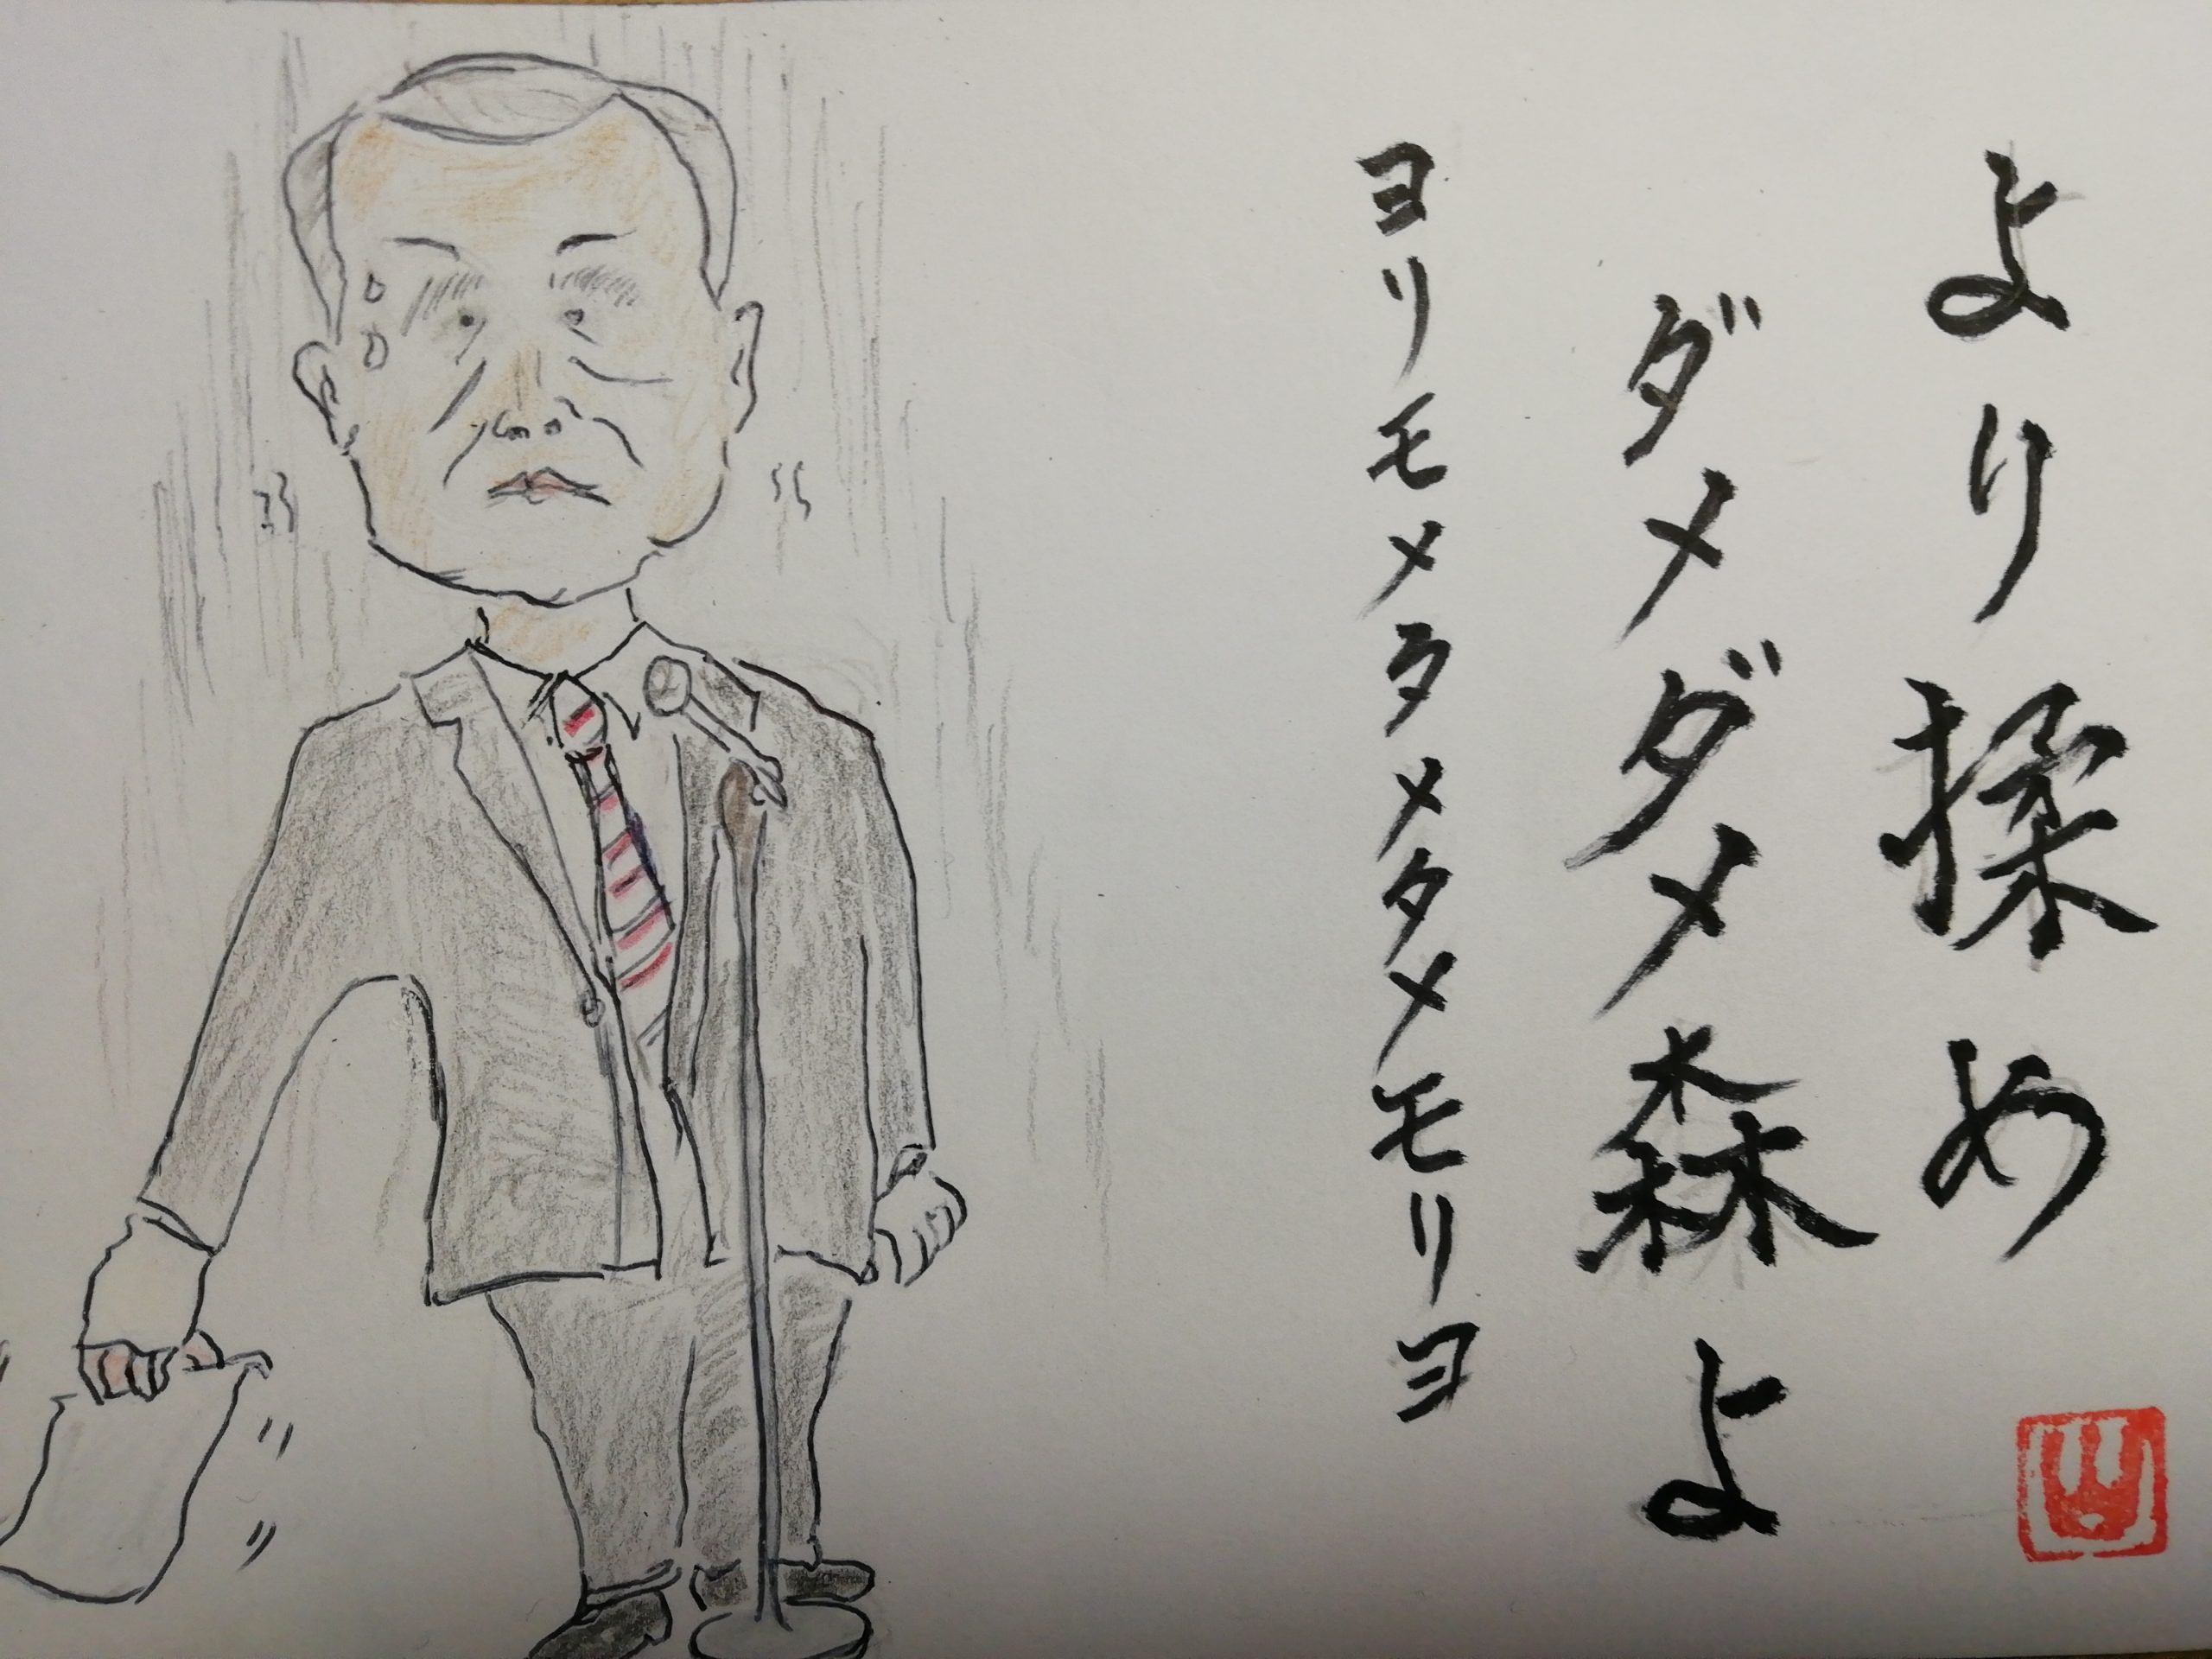 より揉め
ダメダメ森よ
ヨリモメタメタメモリヨ
山